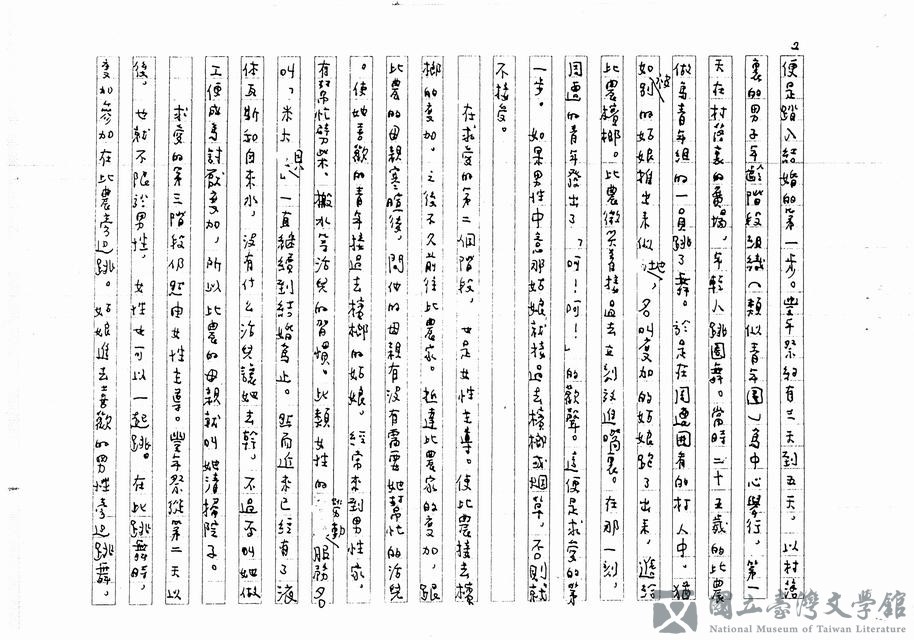 2
便是踏入結婚的第一步。豐年祭約有三天到五天，以村落
裏的男子年齡階段組織（類似青年團）為中心舉行，第一
天在村落裏的廣場，年輕人跳團舞。當時二十五歲的比農
做為青年組的一員跳了舞。於是在周遭圍者的打人中，猶
如跳的姑娘推出來似地，名叫度加的姑娘跑了出來，遞給
比農檳榔。比農微笑著接過去立刻放進嘴裏。在那一刻，
周遭的青年發出了「呵！呵！」的歡聲。這便是求愛的第
一步。如果男性中意那姑娘就接過去檳榔或烟草，否則就
不接受。
在求愛的第二個階段，也是女性主導。使比農接去檳
榔的度加。之後不久前往比農家。抵達比農家的度加，跟
比農的母親寒暄後，問他的母親有沒有需要她幫忙的活兒
。使她喜歡的青年接過去檳榔的姑娘，經常來到男性家，
有幫忙劈柴、搬水等活兒的習慣。此類女性的勞動服務名
叫「米大  」一直繼續到結婚為止。然而近來已經有了液
体瓦斯和自來水，沒有什么活兒讓她去幹，不過不叫她做
工便成為討厭度加，所以比農的母親就叫她清掃院子。
求愛的第三階段仍然由女性主導。豐年祭從第二天以
後，也就不限於男性，女性也可以一起跳。在此跳舞時，
度加參加在比農旁邊跳。姑娘進去喜歡的男性旁邊跳舞，
國立臺灣文學館
National Museum of Taiwan Literature